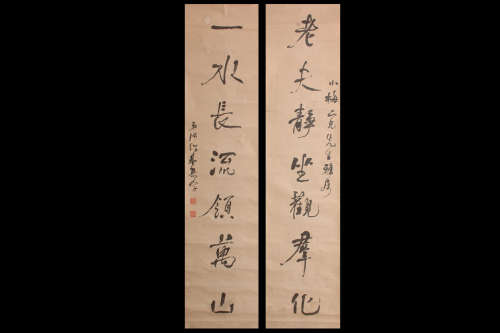 老夫靜坐觀羣化
小梅
一水長流領萬山